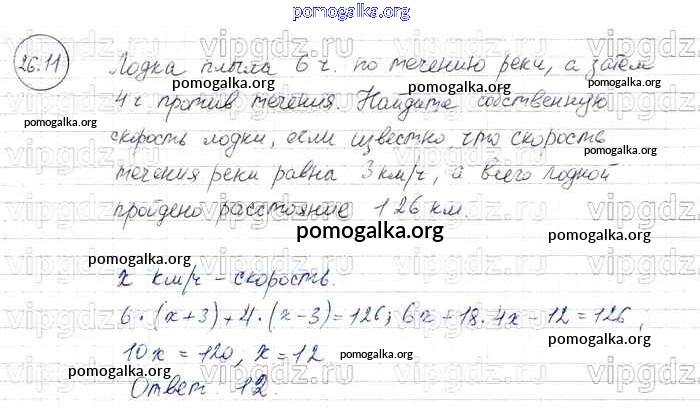 pomogalka.org
26.11 Лодка плыла 6 ч. по течению реки, а затем
4 ч против течения. Найдите собственную
pomogalka.org
pomogalka.org
скорость лодки, если известно что скорость
pomogalka.org
течения реки равна 3 км/ч, а всего лодкой
пройдено расстояние 126 км.
pomogalka.org
pomogalka.org
х км/ч - скорость.
6·(х+3)+4·(х-3)=126; 6х+18·4х-12=126,
pomogalka.org
10х=120, х=12
pomogalka.org
pomogalka.org
Ответ. 12.
pomogalka.org
vipgdz.ru